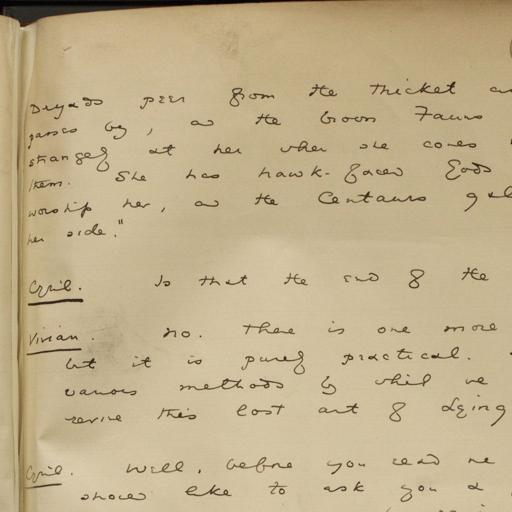 Dryads peer from the thicket as
passes by, and the brown Fauns
strangely at her when she comes
them. She has hawk-faced Gods
worship her, and the Centaurs gal
her side."
Cyril. Is that the end of the
Vivian. No. There is one more
but it is purely practical.
various methods by which we
revive this lost art of Lying
Cyril. Well, before you read me
should like to ask you a